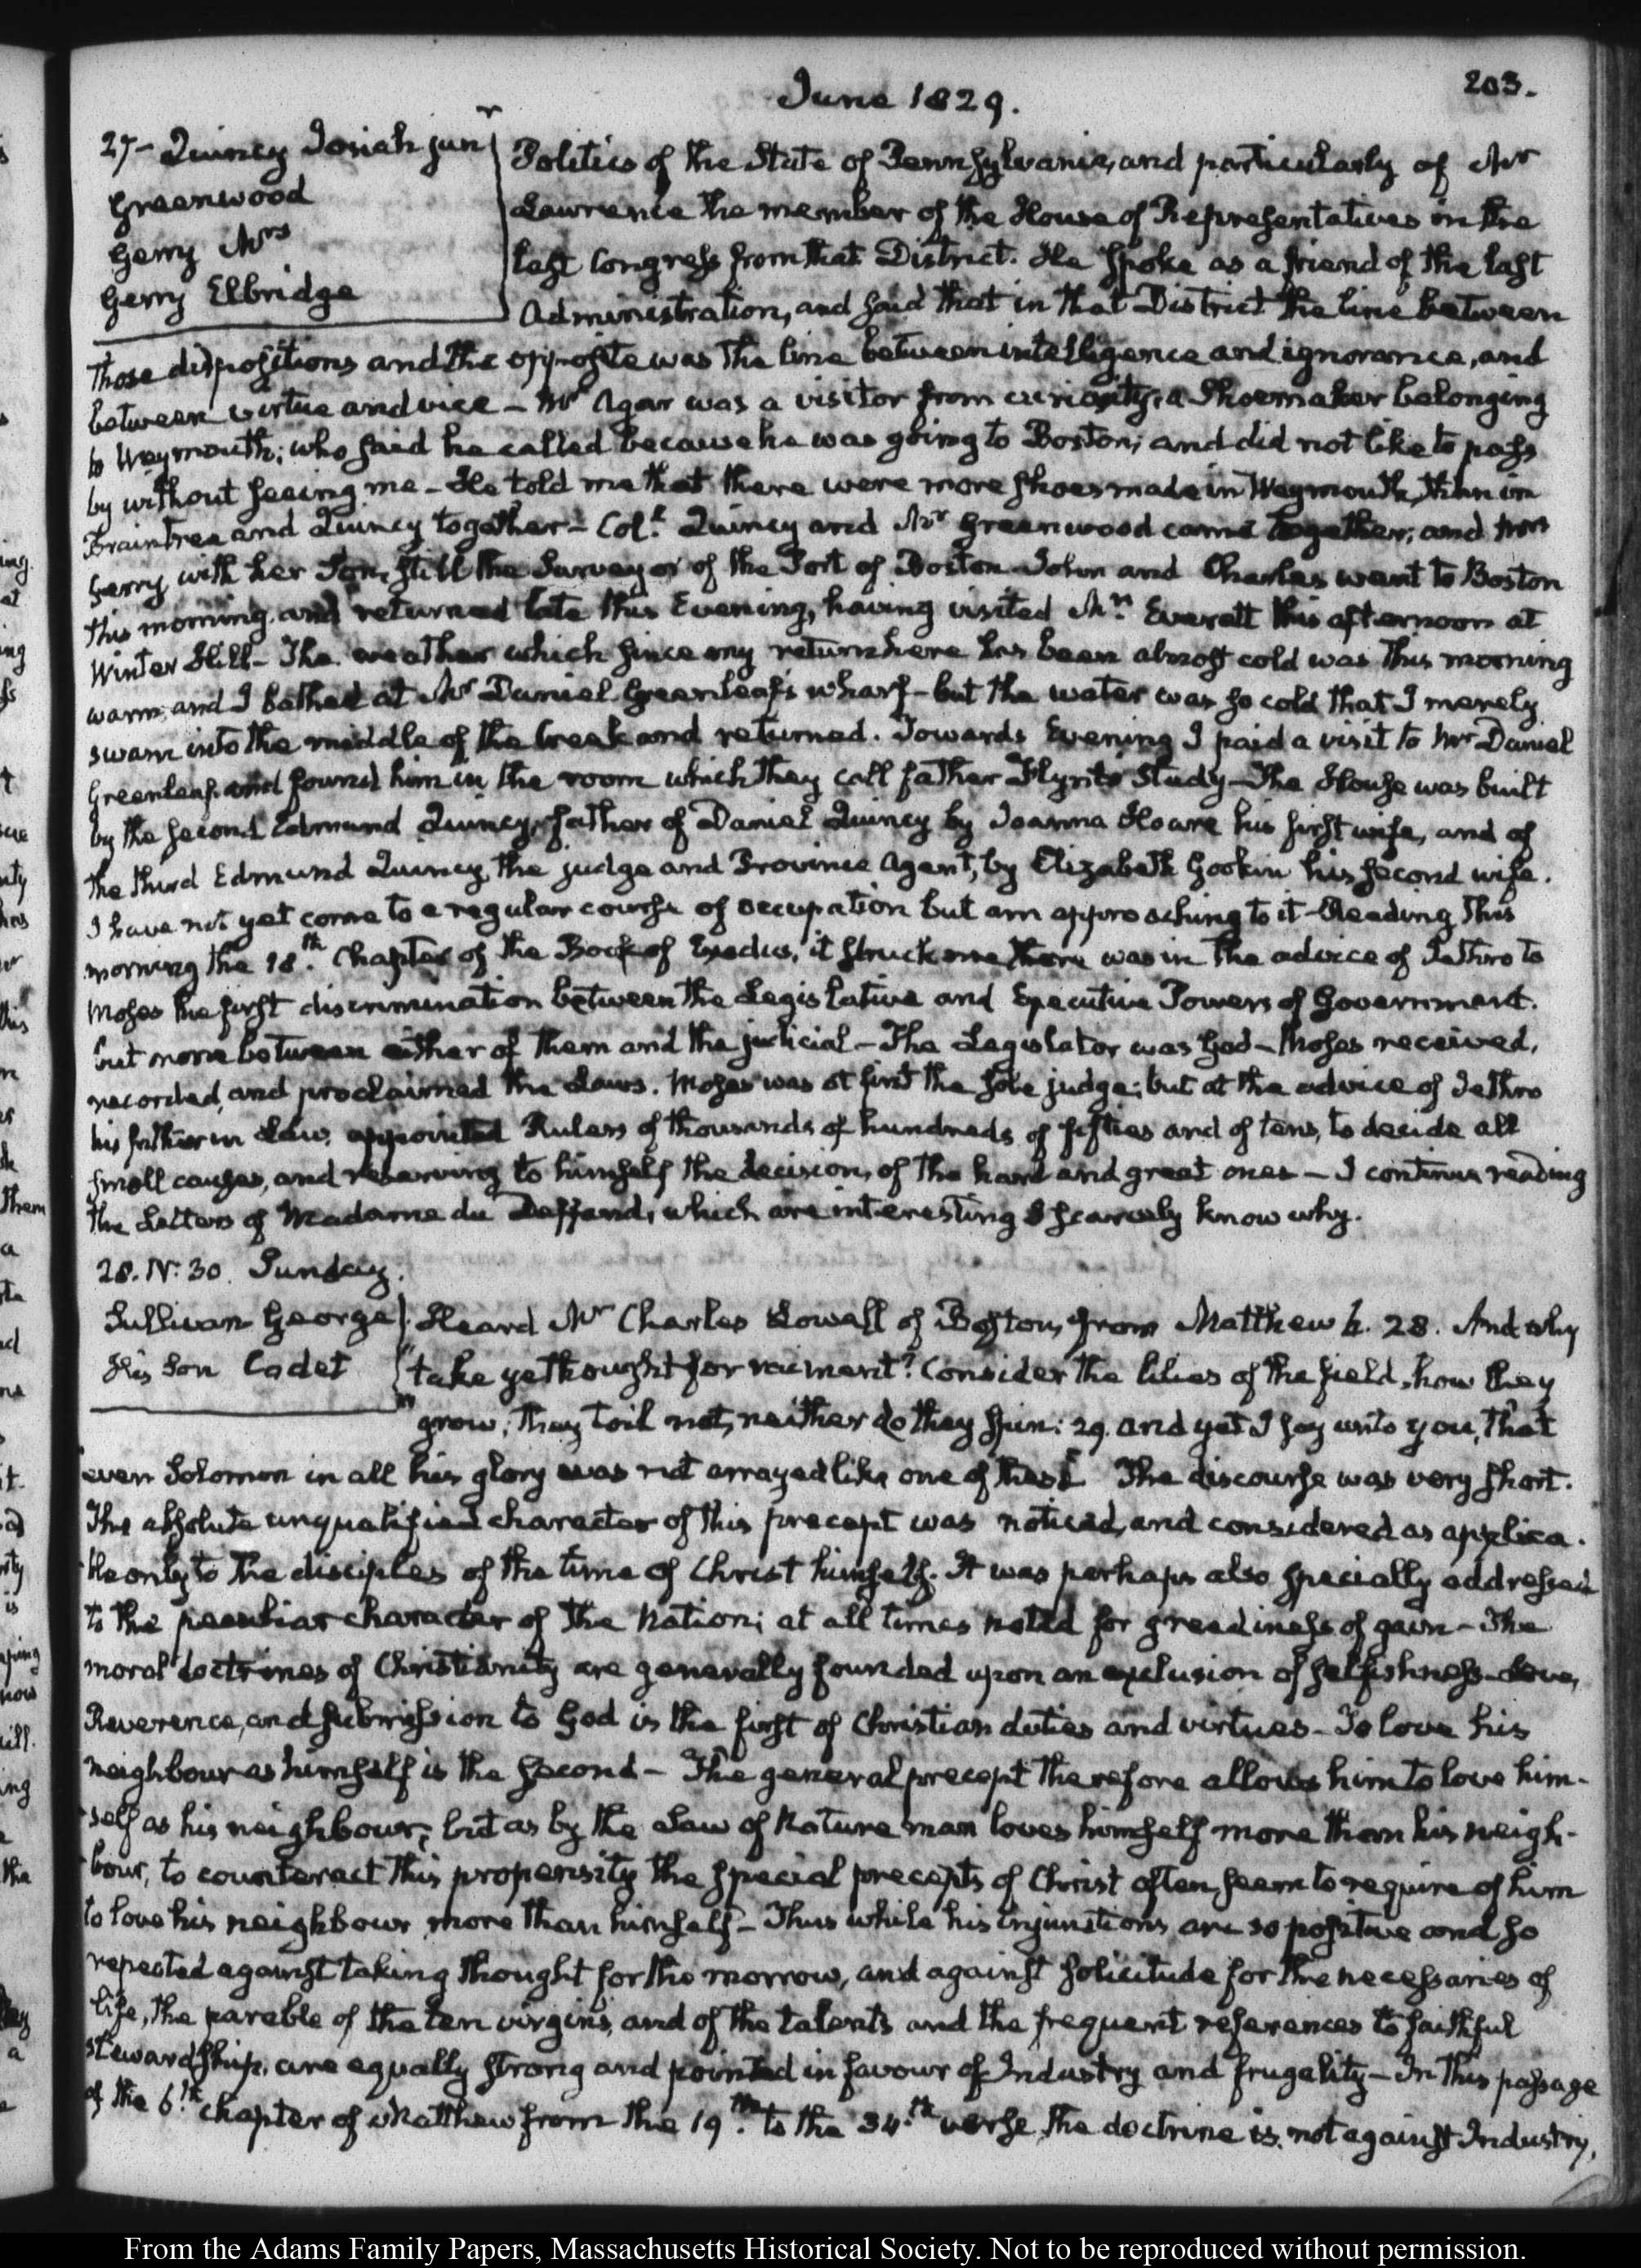 June 1829.
203.
27 – Quincy Josiah junr
Greenwood
Gerry Mrs
Gerry Elbridge
Politics of the State of Pennsylvania, and particularly of Mr
Lawrence the member of the House of Representatives in the
last Congress from that District. He spoke as a friend of the last
Administration, and said that in that District the line between
those dispositions and the opposite was the line between intelligence and ignorance, and
between virtue and vice – Mr Agar was a visitor from curiosity, a Shoemaker belonging
to Weymouth; who said he called because he was going to Boston; and did not like to pass
by without seeing me – He told me that there were more shoes made in Weymouth, than in
Braintree and Quincy together – Col. Quincy and Mr Greenwood came together; and Mrs
Gerry with her Son, still the Surveyor of the Port of Boston John and Charles went to Boston
this morning and returned late this Evening, having visited Mr. Everett this afternoon at
Winter Hill – The weather which since my return here has been almost cold was this morning
warm, and I bathed at Mr Daniel Greenleaf's wharf – but the water was so cold that I merely
swam into the middle of the creek and returned. Towards Evening I paid a visit to Mr Daniel
Greenleaf, and found him in the room which they call father Flynt's Study – The House was built
by the second Edmund Quincy, father of Daniel Quincy by Joanna Hoare his first wife, and of
the third Edmund Quincy, the judge and Province Agent, by Elizabeth Gookin his second wife.
I have not yet come to a regular course of occupation but am approaching to it – Reading this
morning the 18.th Chapter of the Book of Exodus, it struck me there was in the advice of Jethro to
Moses the first discrimination between the Legislative and Executive Powers of Government.
but none between either of them and the judicial – The Legislator was God – Moses received,
recorded, and proclaimed the Laws. Moses was at first the sole judge; but at the advice of Jethro
his father in Law, appointed Rulers of thousands of hundreds of fifties and of tens, to decide all
small causes, and reserving to himself the decision, of the hard and great ones – I continue reading
the Letters of Madame du Deffand, which are interesting I scarcely know why.
28. IV: 30. Sunday.
Sullivan George
His Son Cadet
Heard Mr Charles Lowell of Boston, from Matthew 6. 28. And why
"take ye thought for raiment? Consider the lilies of the field, how they
"grow; they toil not, neither do they spin: 29. and yet I say unto you, That
even Solomon in all his glory was not arrayed like one of these" The discourse was very short.
The absolute unqualified character of this precept was noticed, and considered as applica-
ble only to the disciples of the time of Christ himself. It was perhaps also specially addressed
to the peculiar character of the Nation; at all times noted for greediness of gain – The
moral doctrines of Christianity are generally founded upon an exclusion of selfishness – Love,
Reverence, and submission to God is the first of Christian duties and virtues – To love his
neighbour as himself is the second – The general precept therefore allows him to love him-
self as his neighbour; but as by the Law of Nature man loves himself more than his neigh-
bour, to counteract this propensity the special precepts of Christ often seem to require of him
to love his neighbour more than himself – Thus while his injunctions are so positive and so
repeated against taking thought for the morrow, and against solicitude for the necessaries of
life, the parable of the ten virgins, and of the talents and the frequent references to faithful
stewardship, are equally strong and pointed in favour of Industry and frugality – In this passage
of the 6.th chapter of Matthew from the 19.th to the 34.th verse, the doctrine is not against Industry,
From the Adams Family Papers, Massachusetts Historical Society. Not to be reproduced without permission.